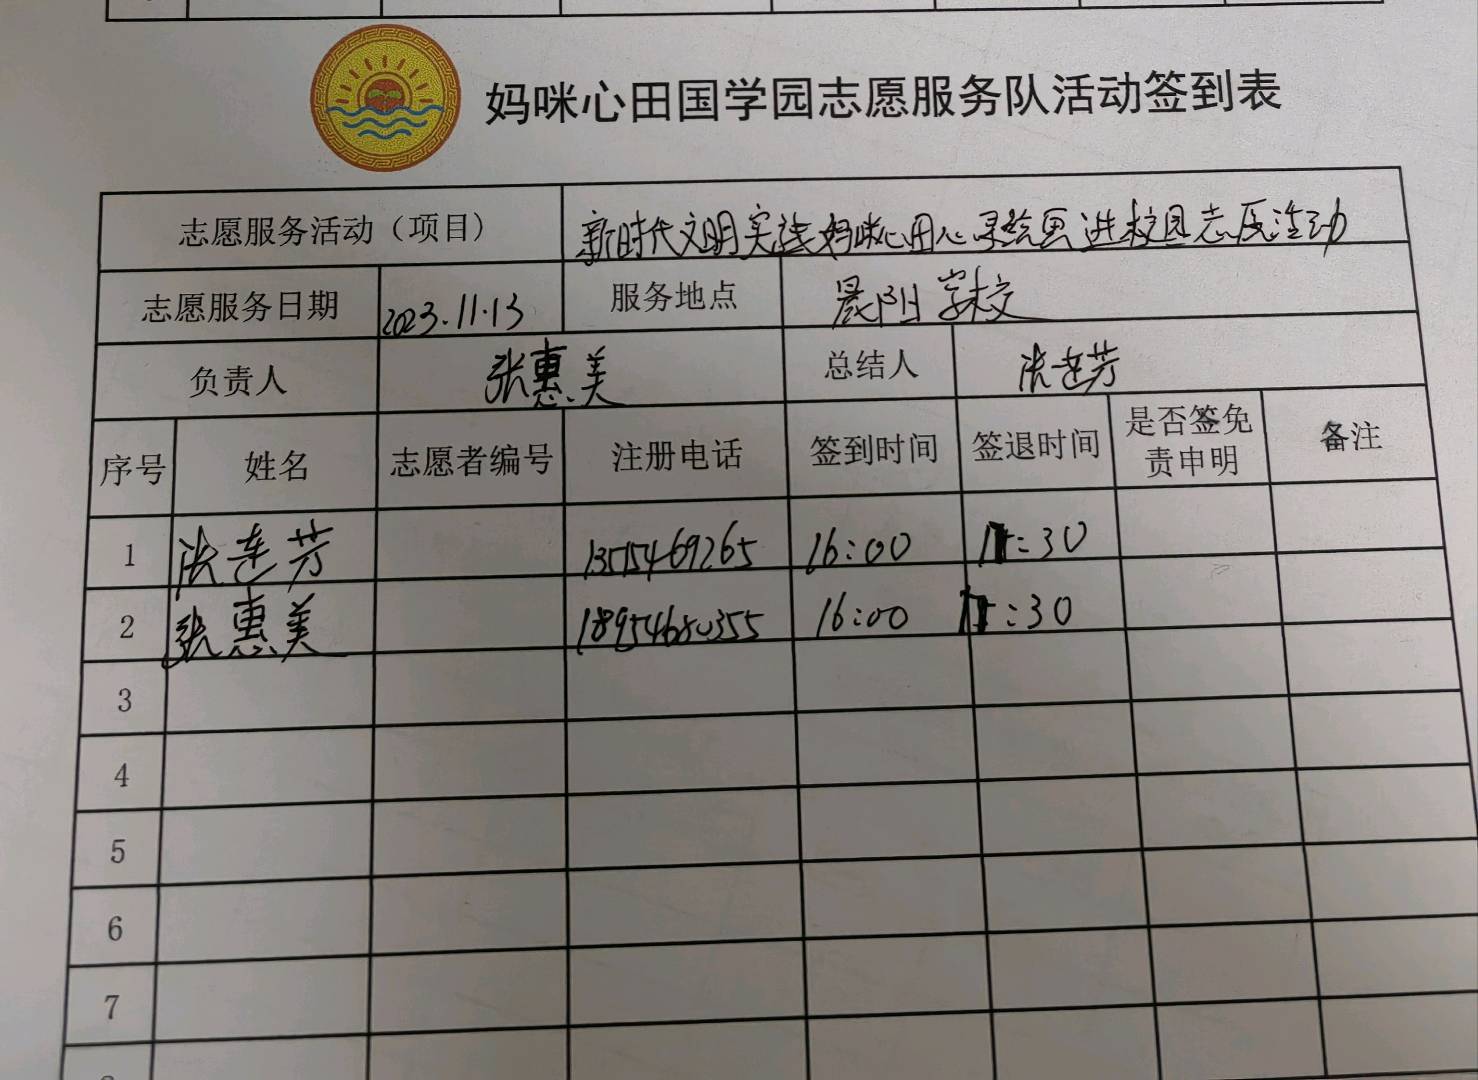 妈咪心田国学园志愿服务队活动签到表
志愿服务活动（项目） 新时代文明实践妈咪心田心灵绘画进校园志愿活动
志愿服务日期 2023.11.13 服务地点 晨阳学校
负责人 张惠美 总结人 张连芳
序号 姓名 志愿者编号 注册电话 签到时间 签退时间 是否签免责申明 备注
1 张连芳 13515469265 16:00 :30
2 张惠美 18954680355 16:00 :30
3
4
5
6
7